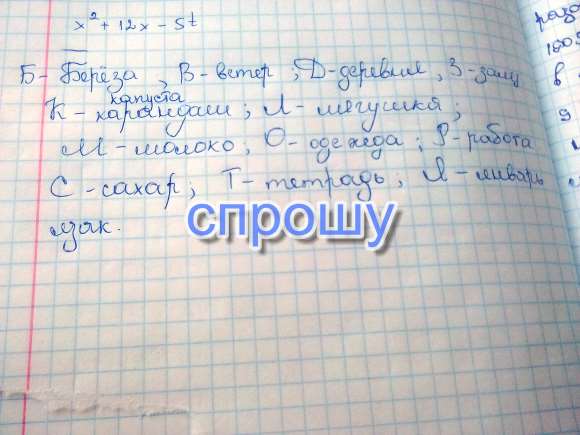 x² + 12x - 5t
разо
Б - Берёза, В - ветер; Д - деревня, З - заяц
капуста
К - карандаш; Л - лягушка;
в
9
М - молоко; О - одежда; Р - работа
С - сахар; Т - тетрадь; Я - январь
язык.
спрошу